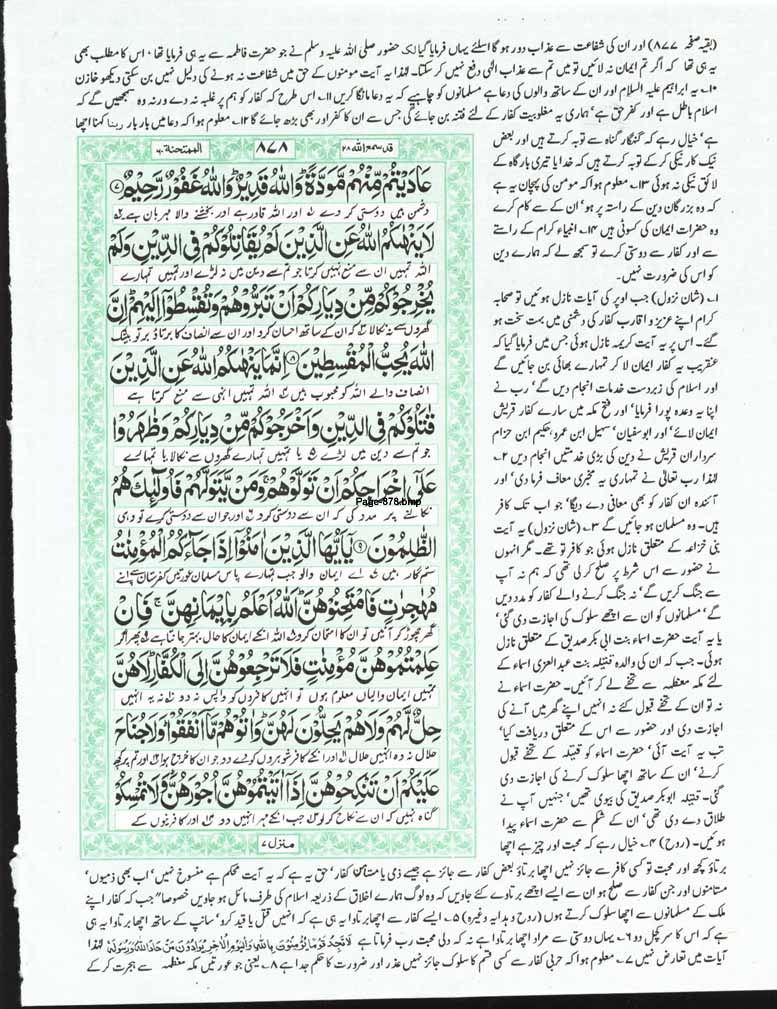 (بقیہ صفحہ ۸۷۷) اور ان کی شفاعت سے عذاب دور ہو گا اسلئے یہاں فرمایا گیا لک حضور صلی اللہ علیہ وسلم نے جو حضرت فاطمہ سے یہ ہی فرمایا تھا، اس کا مطلب بھی
یہ ہی تھا کہ اگر تم ایمان نہ لائیں تو میں تم سے عذاب الٰہی دفع نہیں کر سکتا۔ لہٰذا یہ آیت مومنوں کے حق میں شفاعت نہ ہونے کی دلیل نہیں بن سکتی دیکھو خازن
۱۰۔ یہ ابراہیم علیہ السلام اور ان کے ساتھ والوں کی دعا ہے مسلمانوں کو چاہیے کہ یہ دعا مانگا کریں ۱۱۔ اس طرح کہ کفار کو ہم پر غلبہ نہ دے ورنہ وہ سمجھیں گے کہ
اسلام باطل ہے اور کفر حق ہے، ہماری یہ مغلوبیت کفار کے لئے فتنہ بن جائے گی جس سے ان کا کفر اور بھی بڑھ جائے گا ۱۲۔ معلوم ہوا کہ دعا میں بار بار ربنا کہنا اچھا
ہے، خیال رہے کہ گنہگار گناہ سے توبہ کرتے ہیں اور بعض
نیک کار نیکی کر کے توبہ کرتے ہیں کہ خدایا تیری بارگاہ کے
لائق نیکی نہ ہوئی ۱۳۔ معلوم ہوا کہ مومن کی پہچان یہ ہے
کہ وہ بزرگان دین کے راستہ پر ہو، ان کے سے کام کرے
وہ حضرات ایمان کی کسوٹی ہیں ۱۴۔ انبیاء کرام کے راستے
سے اور کفار سے دوستی کرے تو سمجھ لے کہ ہمارے دین
کو اس کی ضرورت نہیں۔
۱۔ (شان نزول) جب اوپر کی آیات نازل ہوئیں تو صحابہ
کرام اپنے عزیز و اقارب کفار کی دشمنی میں بہت سخت ہو
گئے۔ اس پر یہ آیت کریمہ نازل ہوئی جس میں فرمایا گیا کہ
عنقریب یہ کفار ایمان لا کر تمہارے بھائی بن جائیں گے
اور اسلام کی زبردست خدمات انجام دیں گے، رب نے
اپنا یہ وعدہ پورا فرمایا، اور فتح مکہ میں سارے کفار قریش
ایمان لائے، اور ابوسفیان، سہیل ابن عمرو، حکیم ابن حزام
سرداران قریش نے دین کی بڑی خدمتیں انجام دیں ۲۔
لہٰذا رب تعالیٰ نے تمہاری یہ مخبری معاف فرما دی، اور
آئندہ ان کفار کو بھی معافی دے دیگا، جو اب تک کافر
ہیں۔ وہ مسلمان ہو جائیں گے ۳۔ (شان نزول) یہ آیت
بنی خزاعہ کے متعلق نازل ہوئی جو کافر تو تھے۔ مگر انہوں
نے حضور سے اس شرط پر صلح کر لی تھی کہ ہم نہ آپ
سے جنگ کریں گے، نہ جنگ کرنے والے کفار کو مدد دیں
گے، مسلمانوں کو ان سے اچھے سلوک کی اجازت دی گئی،
یا یہ آیت حضرت اسماء بنت ابی بکر صدیق کے متعلق نازل
ہوئی۔ جب کہ ان کی والدہ قتیلہ بنت عبدالعزیٰ اسماء کے
لئے مکہ معظمہ سے تحفے لے کر آئیں۔ حضرت اسماء نے
نہ تو ان کے تحفے قبول کئے نہ انہیں اپنے گھر میں آنے کی
اجازت دی اور حضور سے اس کے متعلق دریافت کیا،
تب یہ آیت آئی، حضرت اسماء کو قتیلہ کے تحفے قبول
کرنے، ان کے ساتھ اچھا سلوک کرنے کی اجازت دی
گئی۔ قتیلہ ابوبکر صدیق کی بیوی تھیں، جنہیں آپ نے
طلاق دے دی تھی، ان کے شکم سے حضرت اسماء پیدا
ہوئیں۔ (روح) ۴۔ خیال رہے کہ محبت اور چیز ہے اچھا
قد سمع اللہ ۲۸
۸۷۸
الممتحنۃ ۶۰
عَادَيْتُمْ مِّنْهُمْ مَّوَدَّةً وَاللّٰهُ قَدِيْرٌ وَاللّٰهُ غَفُوْرٌ رَّحِيْمٌ ۷
دشمن ہیں دوستی کر دے اور اللہ قادر ہے اور بخشنے والا مہربان ہے
لَا يَنْهٰىكُمُ اللّٰهُ عَنِ الَّذِيْنَ لَمْ يُقَاتِلُوْكُمْ فِى الدِّيْنِ وَلَمْ
اللہ تمہیں ان سے منع نہیں کرتا جو تم سے دین میں نہ لڑے اور تمہیں تمہارے
يُخْرِجُوْكُمْ مِّنْ دِيَارِكُمْ اَنْ تَبَرُّوْهُمْ وَتُقْسِطُوْٓا اِلَيْهِمْ اِنَّ
گھروں سے نہ نکالا کہ ان کے ساتھ احسان کرو اور ان سے انصاف کا برتاؤ برتو بیشک
اللّٰهَ يُحِبُّ الْمُقْسِطِيْنَ ۸ اِنَّمَا يَنْهٰىكُمُ اللّٰهُ عَنِ الَّذِيْنَ
انصاف والے اللہ کو محبوب ہیں اللہ تمہیں انہی سے منع کرتا ہے
قٰتَلُوْكُمْ فِى الدِّيْنِ وَاَخْرَجُوْكُمْ مِّنْ دِيَارِكُمْ وَظٰهَرُوْا
جو تم سے دین میں لڑے یا تمہیں تمہارے گھروں سے نکالا یا تمہارے
عَلٰٓى اِخْرَاجِكُمْ اَنْ تَوَلَّوْهُمْ وَمَنْ يَّتَوَلَّهُمْ فَاُولٰٓئِكَ هُمُ
Page-878.bmp
نکالنے پر مدد کی کہ ان سے دوستی کرو اور جو ان سے دوستی کرے تو وہی
الظّٰلِمُوْنَ ۹ يٰٓاَيُّهَا الَّذِيْنَ اٰمَنُوْٓا اِذَا جَآءَكُمُ الْمُؤْمِنٰتُ
ستم گار ہیں اے ایمان والو جب تمہارے پاس مسلمان عورتیں کفرستان سے اپنے
مُهٰجِرٰتٍ فَامْتَحِنُوْهُنَّ اَللّٰهُ اَعْلَمُ بِاِيْمَانِهِنَّ فَاِنْ
گھر چھوڑ کر آئیں تو ان کا امتحان کرو اللہ انکے ایمان کا حال بہتر جانتا ہے پھر اگر
عَلِمْتُمُوْهُنَّ مُؤْمِنٰتٍ فَلَا تَرْجِعُوْهُنَّ اِلَى الْكُفَّارِ لَا هُنَّ
تمہیں ایمان والیاں معلوم ہوں تو انہیں کافروں کو واپس نہ دو نہ یہ انہیں
حِلٌّ لَّهُمْ وَلَا هُمْ يَحِلُّوْنَ لَهُنَّ وَاٰتُوْهُمْ مَّآ اَنْفَقُوْا وَلَا جُنَاحَ
حلال نہ وہ انہیں حلال اور انکے کافر شوہروں کو دے دو جو ان کا خرچ ہوا اور تم پر کچھ
عَلَيْكُمْ اَنْ تَنْكِحُوْهُنَّ اِذَآ اٰتَيْتُمُوْهُنَّ اُجُوْرَهُنَّ وَلَا تُمْسِكُوْا
گناہ نہیں کہ ان سے نکاح کر لو جب انکے مہر انہیں دو اور کافرنیوں کے
منزل ۷
برتاؤ کچھ اور محبت تو کسی کافر سے جائز نہیں اچھا برتاؤ بعض کفار سے جائز ہے جیسے ذمی یا مستامن کفار، حق یہ ہے کہ یہ آیت محکم ہے منسوخ نہیں، اب بھی ذمیوں،
مستامنوں اور جن کفار سے صلح ہو ان سے ایسے اچھے برتاوے کئے جاویں کہ وہ لوگ ہمارے اخلاق کے ذریعہ اسلام کی طرف مائل ہو جاویں خصوصاً" جب کہ کفار اپنے
ملک کے مسلمانوں سے اچھا سلوک کرتے ہوں (روح و ہدایہ وغیرہ) ۵۔ ایسے کفار سے اچھا برتاوا یہ ہی ہے کہ انہیں قتل یا قید کرو، سانپ کے ساتھ اچھا برتاوا یہ ہی
ہے کہ اس کا سر کچل دو ۶۔ یہاں دوستی سے مراد اچھا برتاوا ہے نہ کہ دلی محبت رب فرماتا ہے لَا تَجِدُ قَوْمًا يُّؤْمِنُوْنَ بِاللّٰهِ وَالْيَوْمِ الْاٰخِرِ يُوَآدُّوْنَ مَنْ حَآدَّ اللّٰهَ وَرَسُوْلَهٗ لہٰذا
آیات میں تعارض نہیں ۷۔ معلوم ہوا کہ حربی کفار سے کسی قسم کا سلوک جائز نہیں عذر اور ضرورت کا حکم جدا ہے ۸۔ یعنی جو عورتیں مکہ معظمہ سے ہجرت کر کے